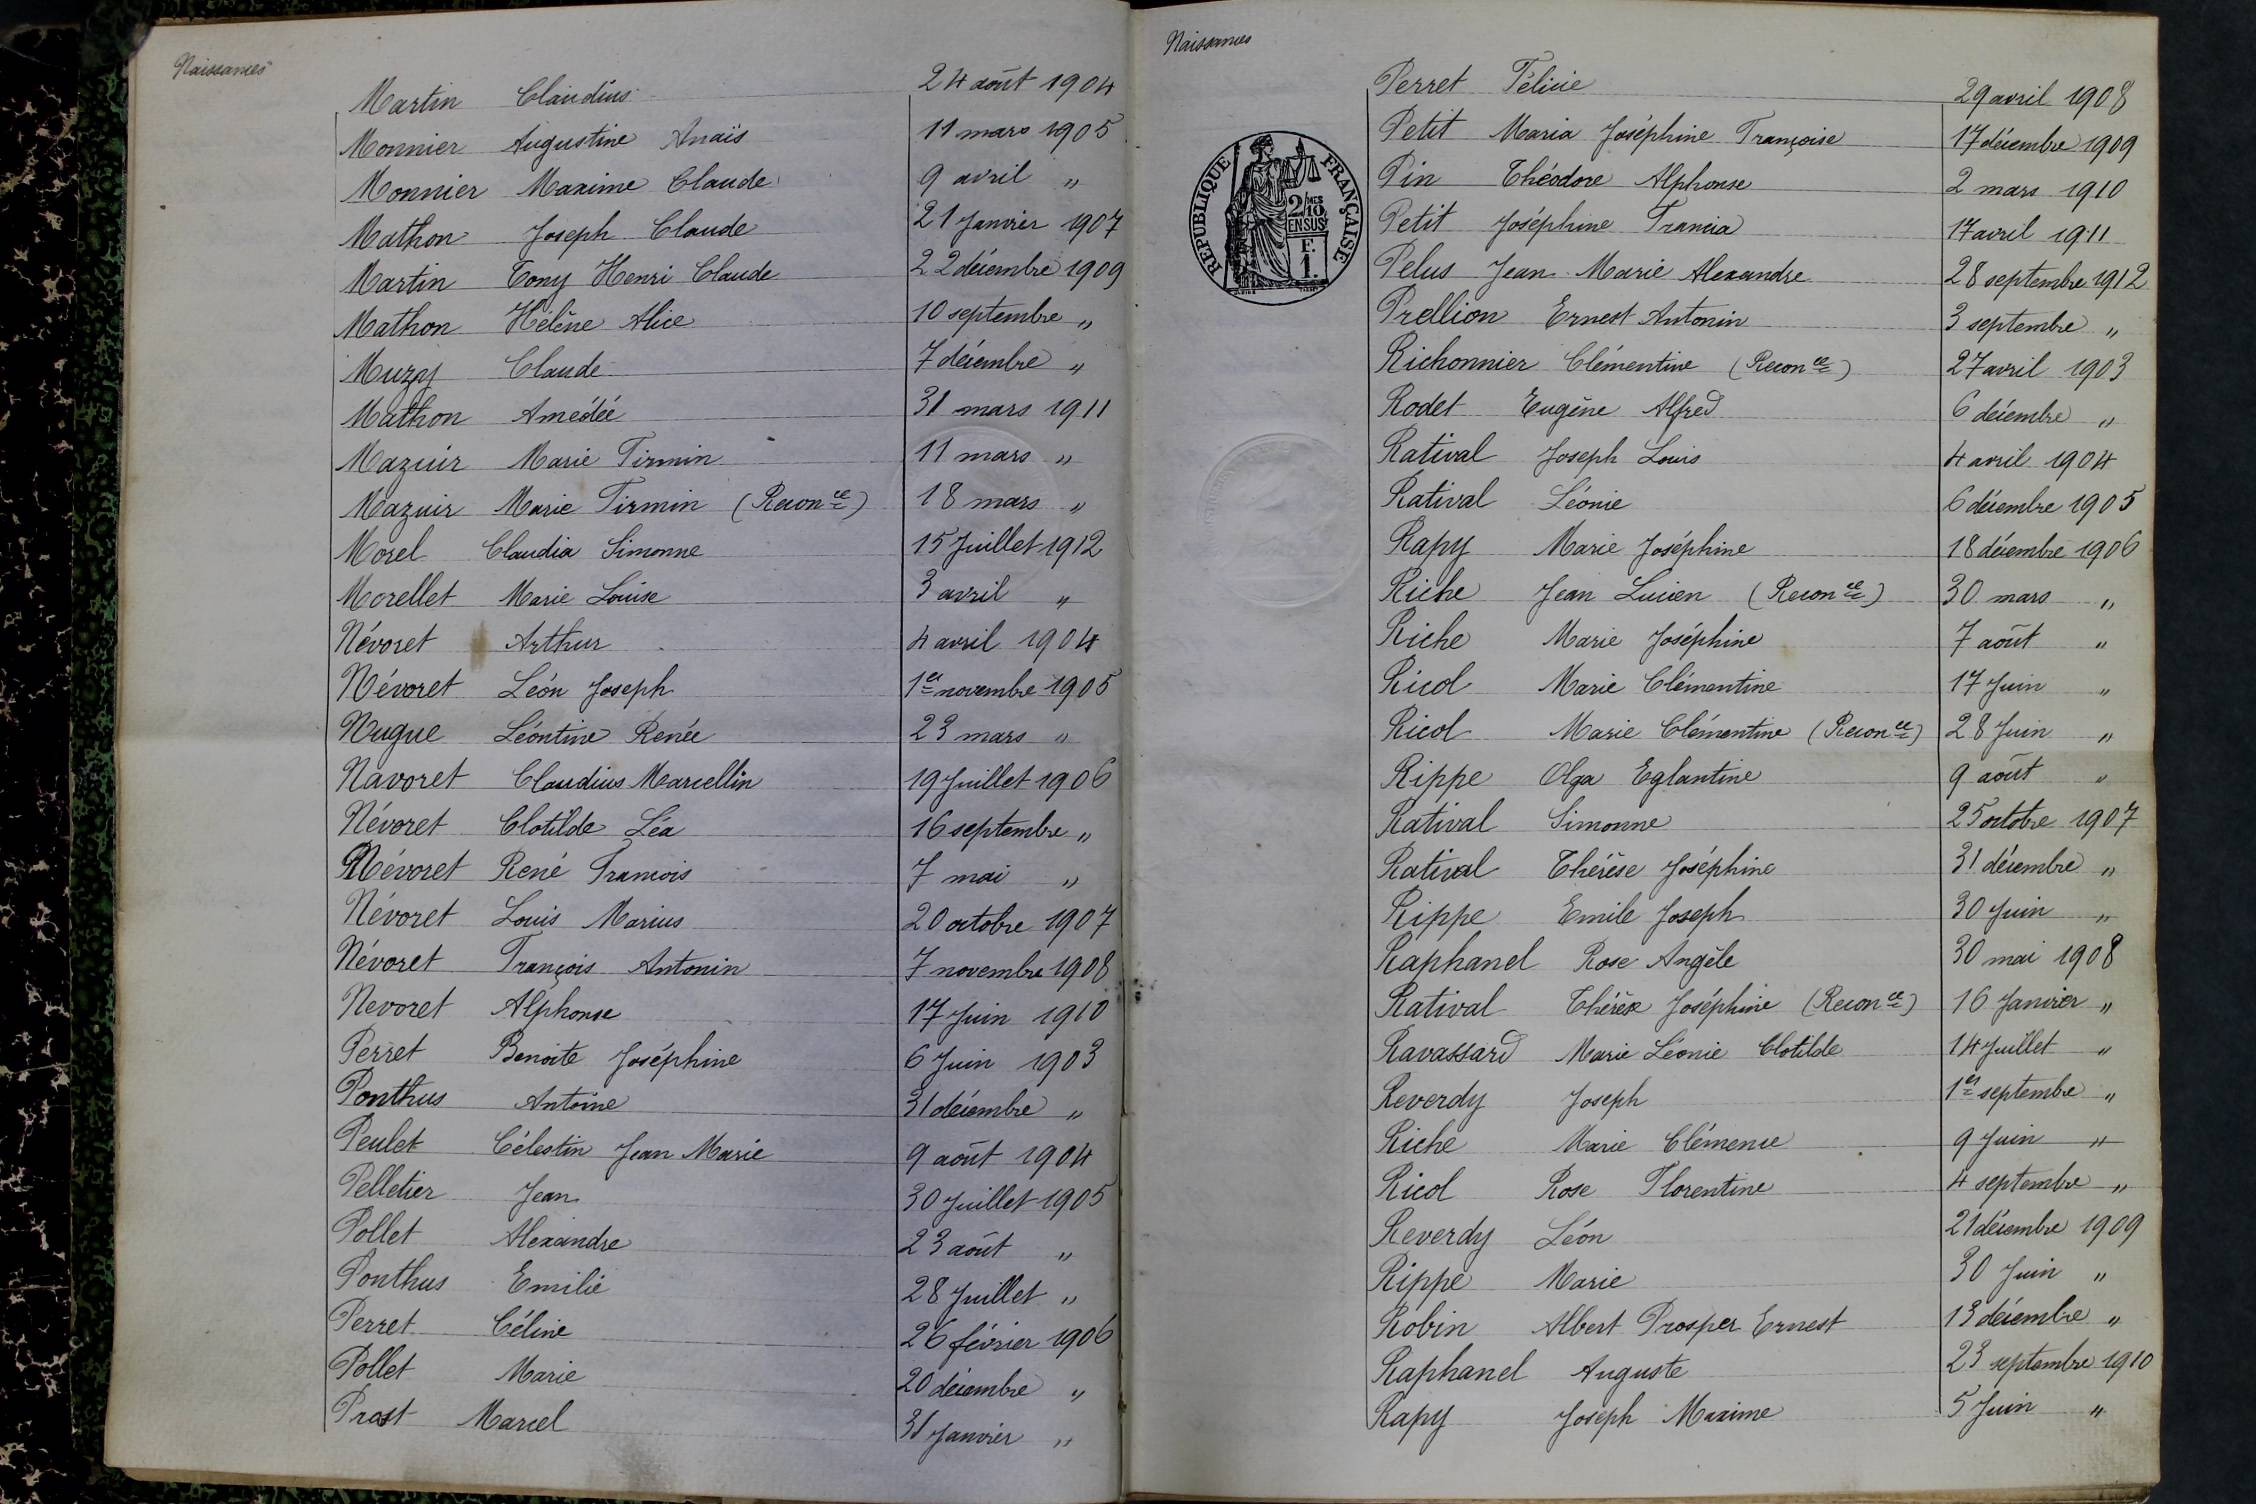 Naissances
Martin Claudius 24 août 1904
Monnier Augustine Anaïs 11 mars 1905
Monnier Maxime Claude 9 avril "
Mathon Joseph Claude 21 Janvier 1907
Martin Tony Henri Claude 22 décembre 1909
Mathon Hélène Alice 10 septembre "
Muzy Claude 7 décembre "
Mathon Amédée 31 mars 1911
Mazuir Marie Firmin 11 mars "
Mazuir Marie Firmin (Recon ce) 18 mars "
Morel Claudia Simonne 15 Juillet 1912
Morellet Marie Louise 3 avril "
Névoret Arthur 4 avril 1904
Névoret Léon Joseph 1er novembre 1905
Nugue Léontine Renée 23 mars "
Navoret Claudius Marcellin 19 Juillet 1906
Névoret Clotilde Léa 16 septembre "
Névoret René Francois 7 mai "
Névoret Louis Marius 20 octobre 1907
Névoret François Antonin 7 novembre 1908
Nevoret Alphonse 17 Juin 1910
Perret Benoite Joséphine 6 Juin 1903
Ponthus Antoine 31 décembre "
Peulet Célestin Jean Marie 9 août 1904
Pelletier Jean 30 Juillet 1905
Pollet Alexandre 23 août "
Ponthus Emilie 28 Juillet "
Perret Céline 26 février 1906
Pollet Marie 20 décembre "
Prost Marcel 31 Janvier "
Naissances
Perret Félicie 29 avril 1908
Petit Maria Joséphine Françoise 17 décembre 1909
Pin Théodore Alphonse 2 mars 1910
Petit Joséphine Francia 17 avril 1911
Pelus Jean Marie Alexandre 28 septembre 1912
Prellion Ernest Antonin 3 septembre "
Richonnier Clémentine (Recon ce) 27 avril 1903
Rodet Eugène Alfred 6 décembre "
Ratival Joseph Louis 4 avril 1904
Ratival Léonie 6 décembre 1905
Rapy Marie Joséphine 18 décembre 1906
Riche Jean Lucien (Recon ce) 30 mars "
Riche Marie Joséphine 7 août "
Ricol Marie Clémentine 17 Juin "
Ricol Marie Clémentine (Recon ce) 28 Juin "
Rippe Olga Eglantine 9 août "
Ratival Simonne 25 octobre 1907
Ratival Thérèse Joséphine 31 décembre "
Rippe Emile Joseph 30 Juin "
Raphanel Rose Angèle 30 mai 1908
Ratival Thérèse Joséphine (Recon ce) 16 Janvier "
Ravassard Marie Léonie Clotilde 14 Juillet "
Reverdy Joseph 1er septembre "
Riche Marie Clémence 9 Juin "
Ricol Rose Florentine 4 septembre "
Reverdy Léon 21 décembre 1909
Rippe Marie 30 Juin "
Robin Albert Prosper Ernest 13 décembre "
Raphanel Auguste 23 septembre 1910
Rapy Joseph Maxime 5 Juin "
REPUBLIQUE FRANÇAISE
2/10 MES
EN SUS
F.
1.